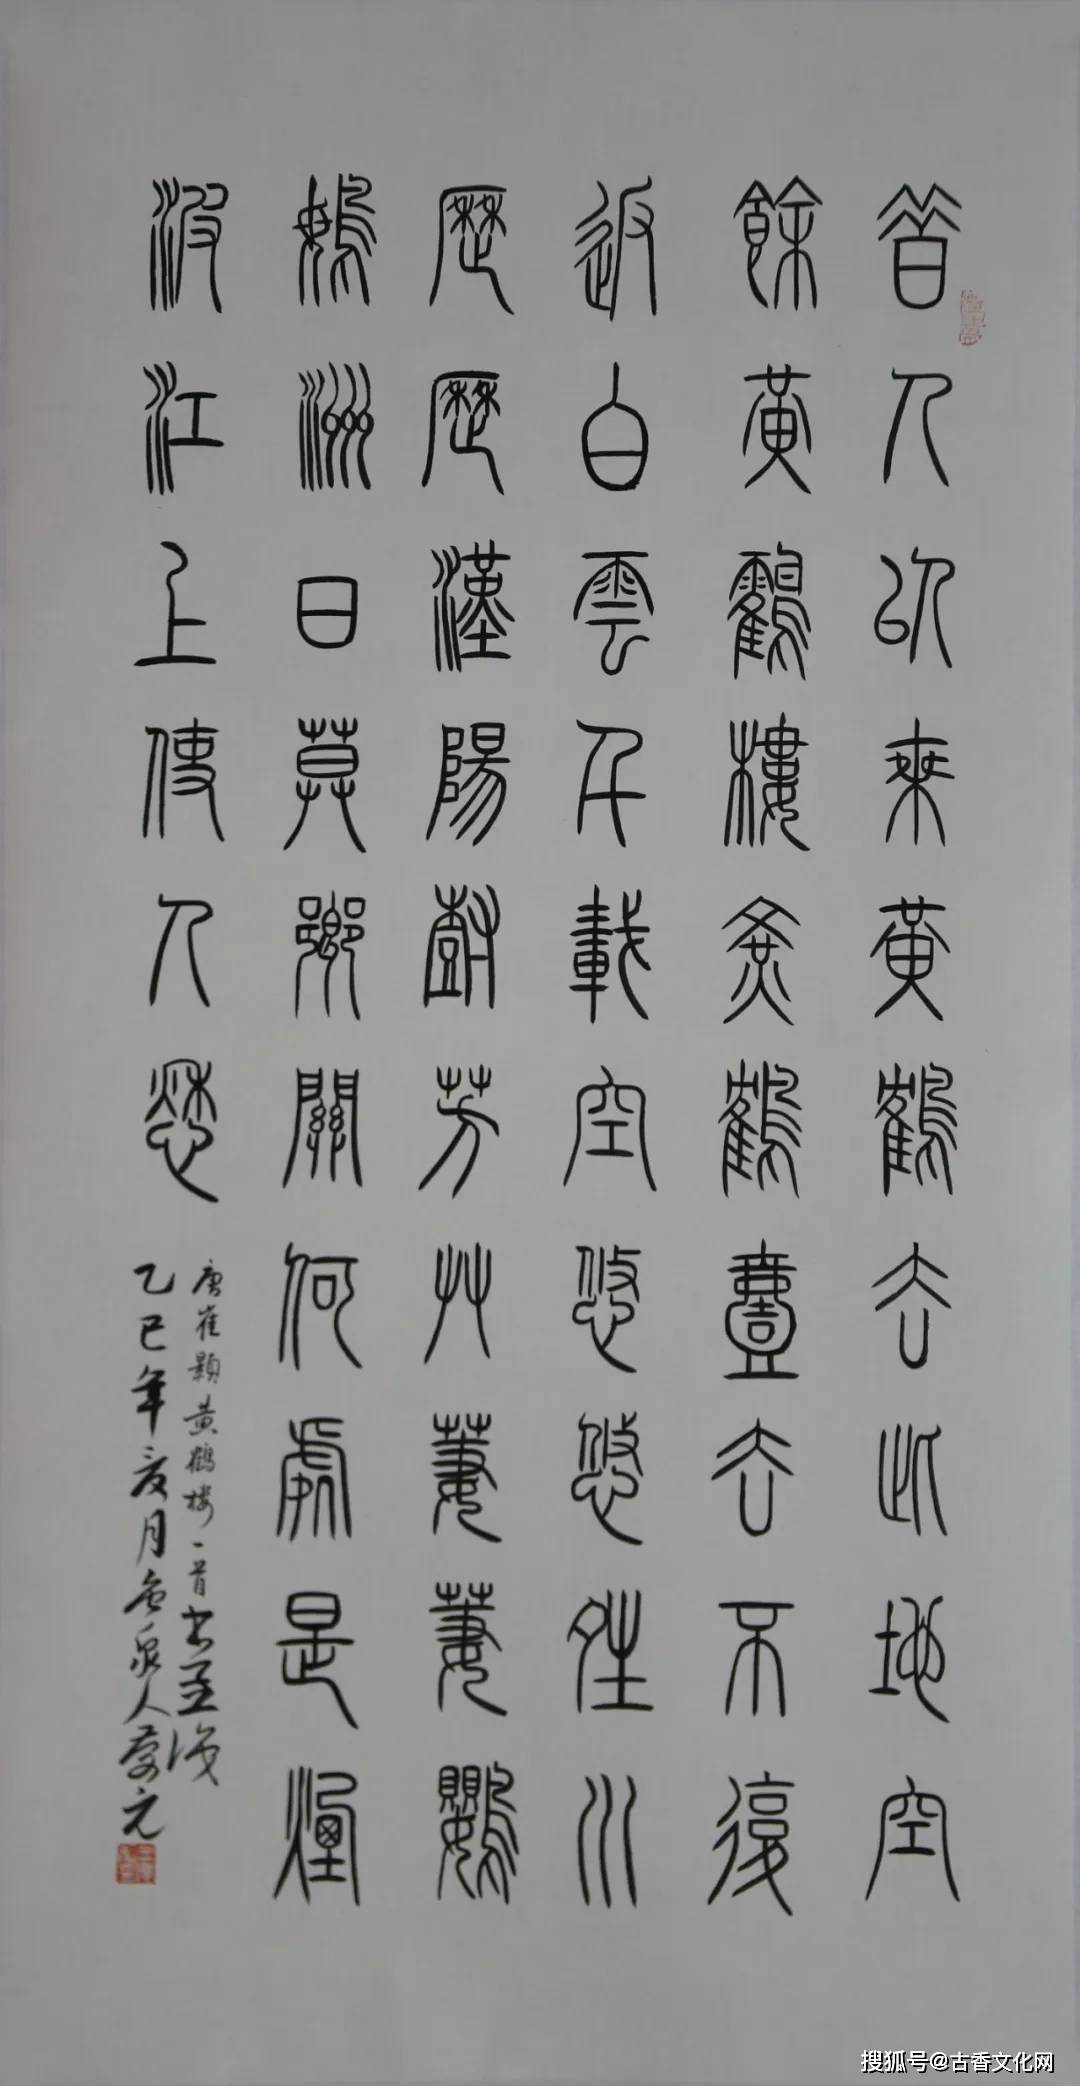 昔人以來黃鶴去此地空
餘黃鶴樓黃鶴壹去不復
返白雲千載空悠悠夝川
歷歷漢陽樹芳艸萋萋鸚
鵡洲日莫鄉關何處是煙
波江上使人愁
唐崔顥黄鶴樓一首書
乙巳年亥月 泉人 元
搜狐号@古香文化网